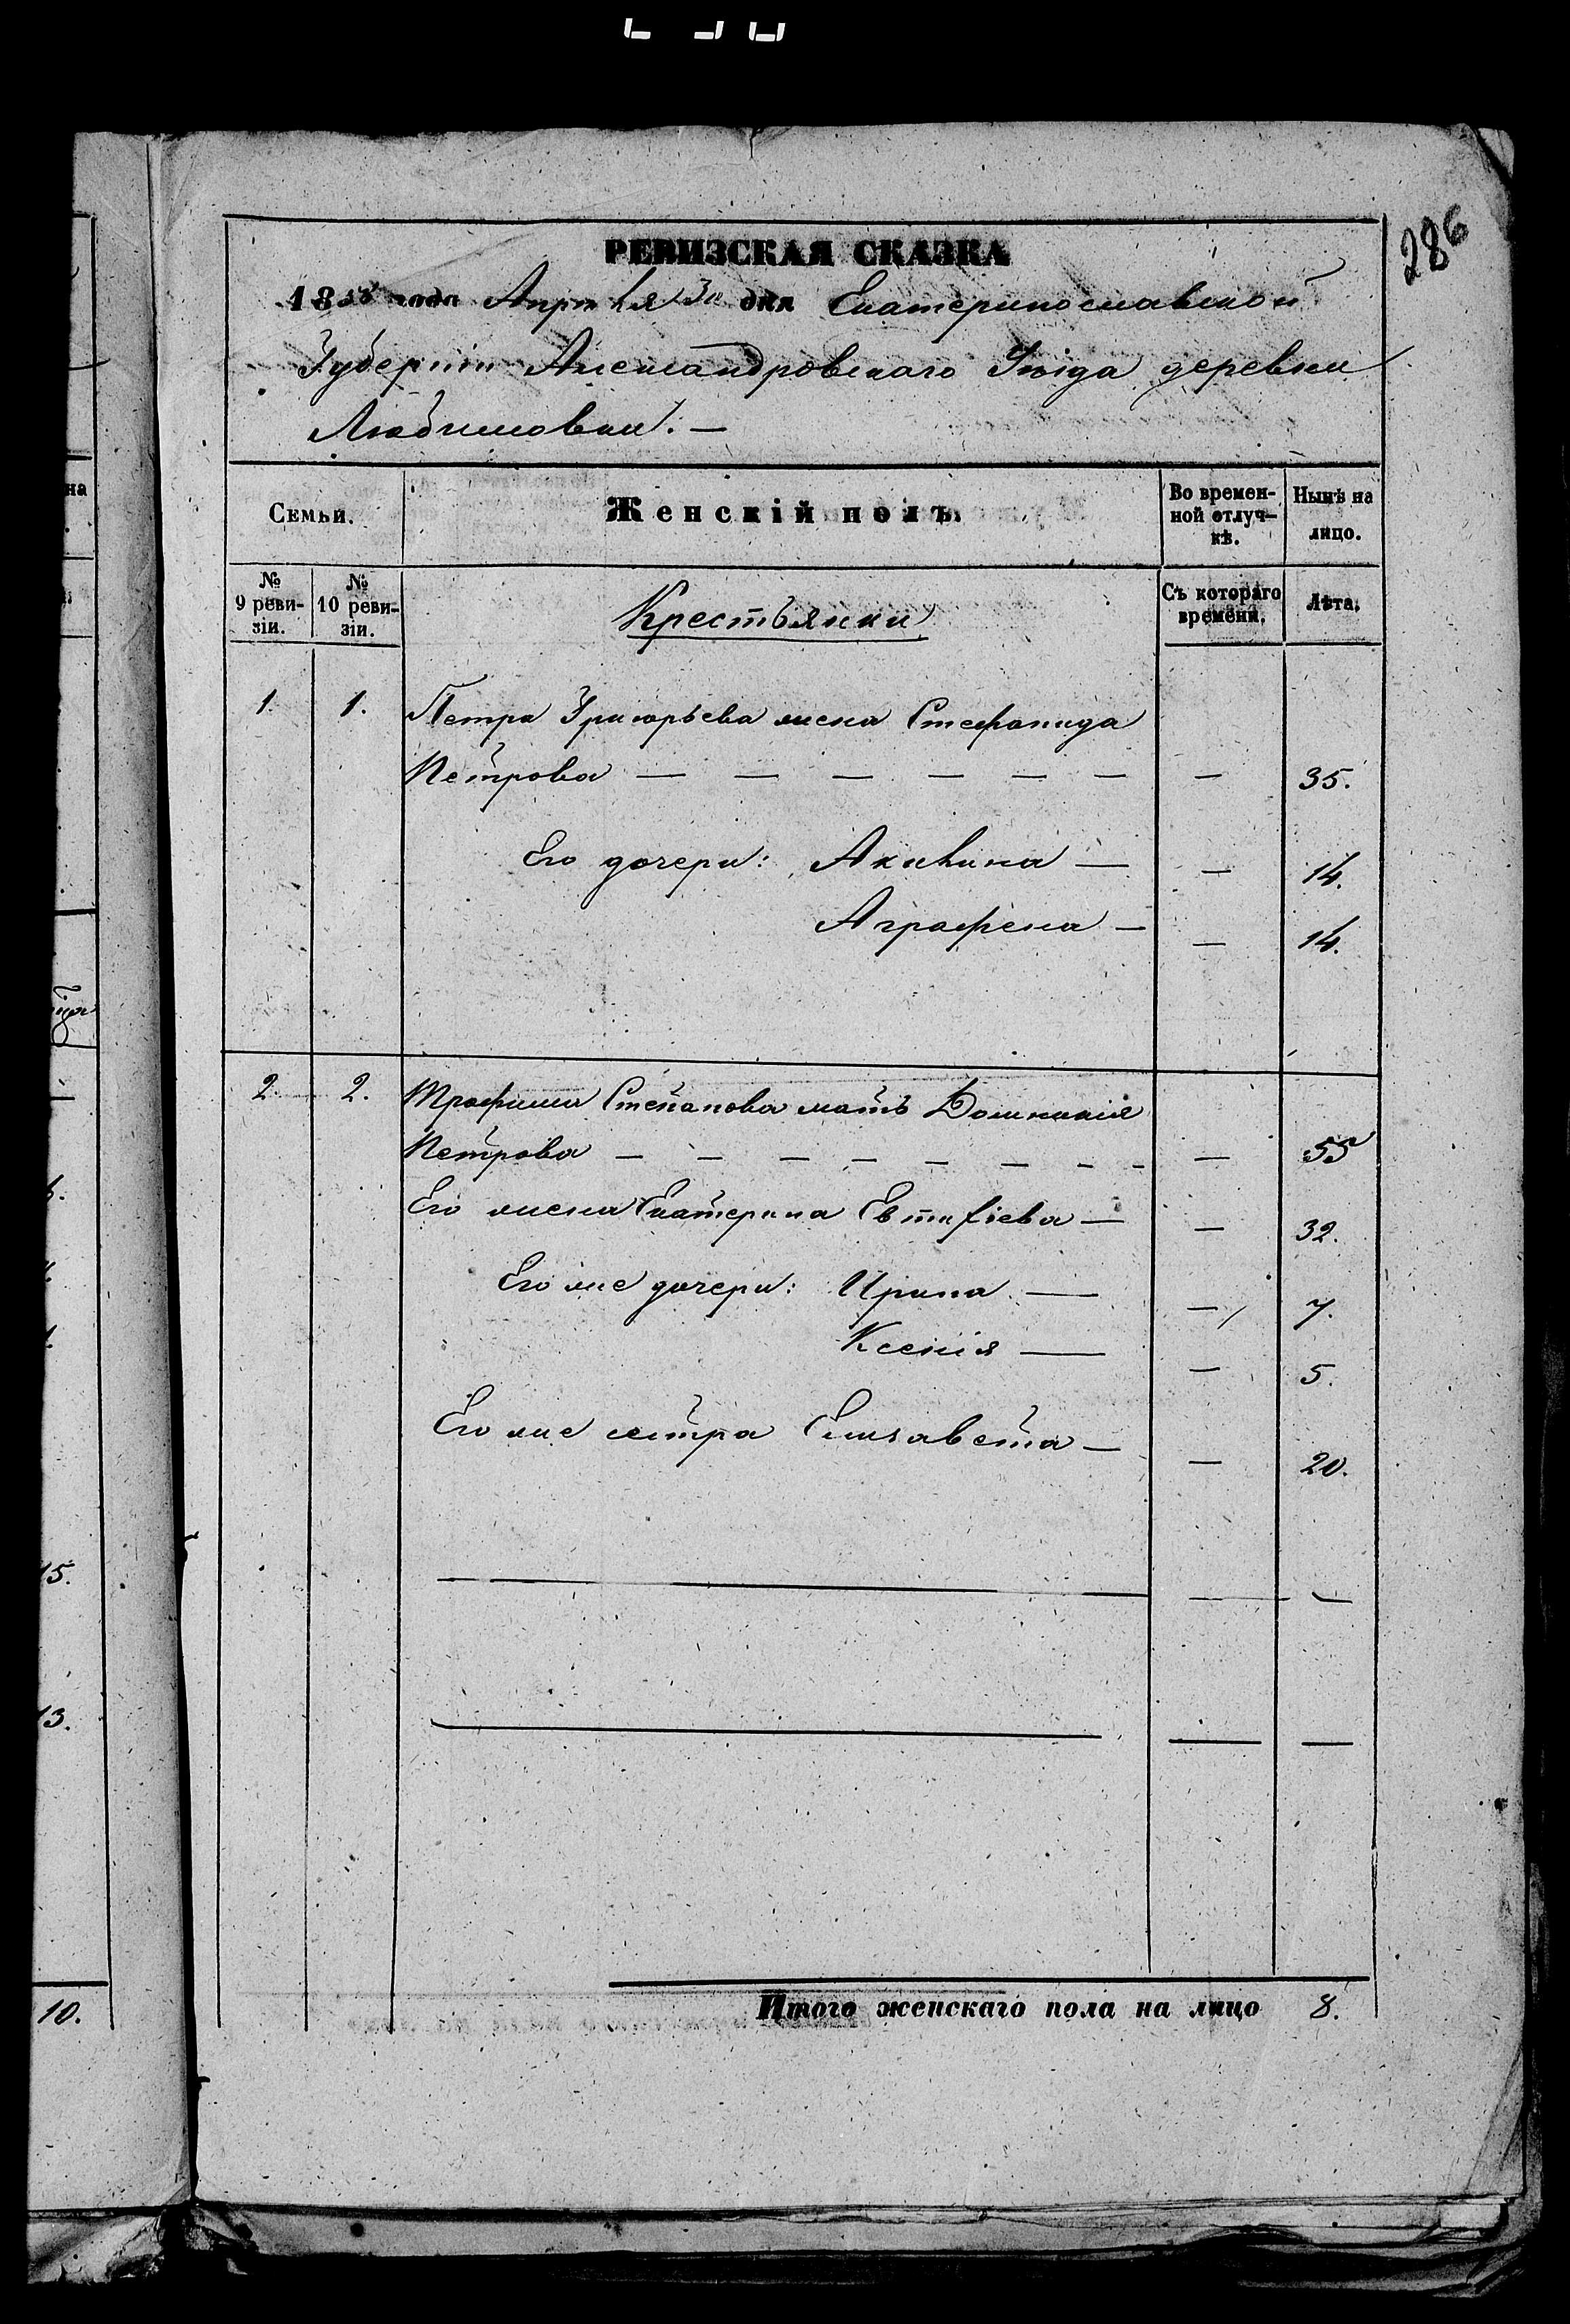 286
РЕВИЗСКАЯ СКАЗКА
1858 года Апрѣля 30 дня Екатеринославской
Губерніи Александровскаго Уѣзда деревни
Любимовки. —
Семьи. Женскій полъ. Во времен- Нынѣ на
ной отлуч- лицо.
кѣ.
№ № Съ котораго Лѣта.
9 реви- 10 реви- времени.
зіи. зіи.
Крестьянки
1. 1. Петра Григорьева жена Стефанида
Петрова — — — — — — — 35.
Его дочери: Акилина — — 14.
Аграфена — — 14.
2. 2. Трофима Степанова мать Домникія
Петрова — — — — — — — — 55
Его жена Екатерина Евтифіева — — 32.
Его же дочери: Ирина — — 7.
Ксенія — — 5.
Его же сестра Елизавета — — 20.
Итого женскаго пола на лицо 8.
на
15.
13.
10.